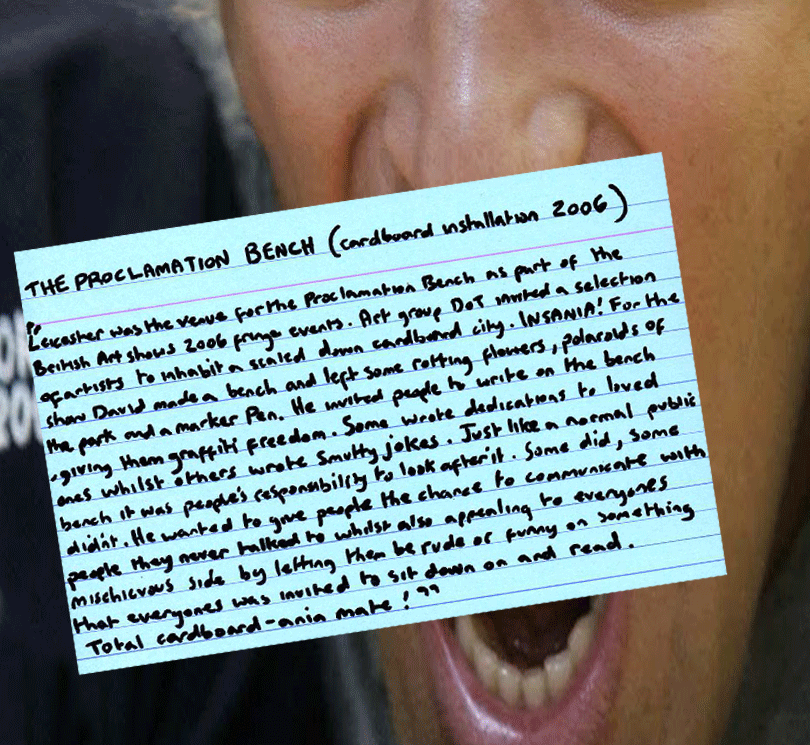 THE PROCLAMATION BENCH (cardboard installation 2006)
Leicester was the venue for the Proclamation Bench as part of the
British Art shows 2006 fringe events. Art group DOT invited a selection
of artists to inhabit a scaled down cardboard city. INSANIA! For the
show David made a bench and left some rotting flowers, polaroids of
the park and a marker Pen. He invited people to write on the bench
-giving them graffiti freedom. Some wrote dedications to loved
ones whilst others wrote smutty jokes. Just like a normal public
bench it was people's responsibility to look after it. Some did, some
didn't. He wanted to give people the chance to communicate with
people they never talked to whilst also appealing to everyones
mischievous side by letting them be rude or funny on something
that everyones was invited to sit down on and read.
Total cardboard-ania mate!"